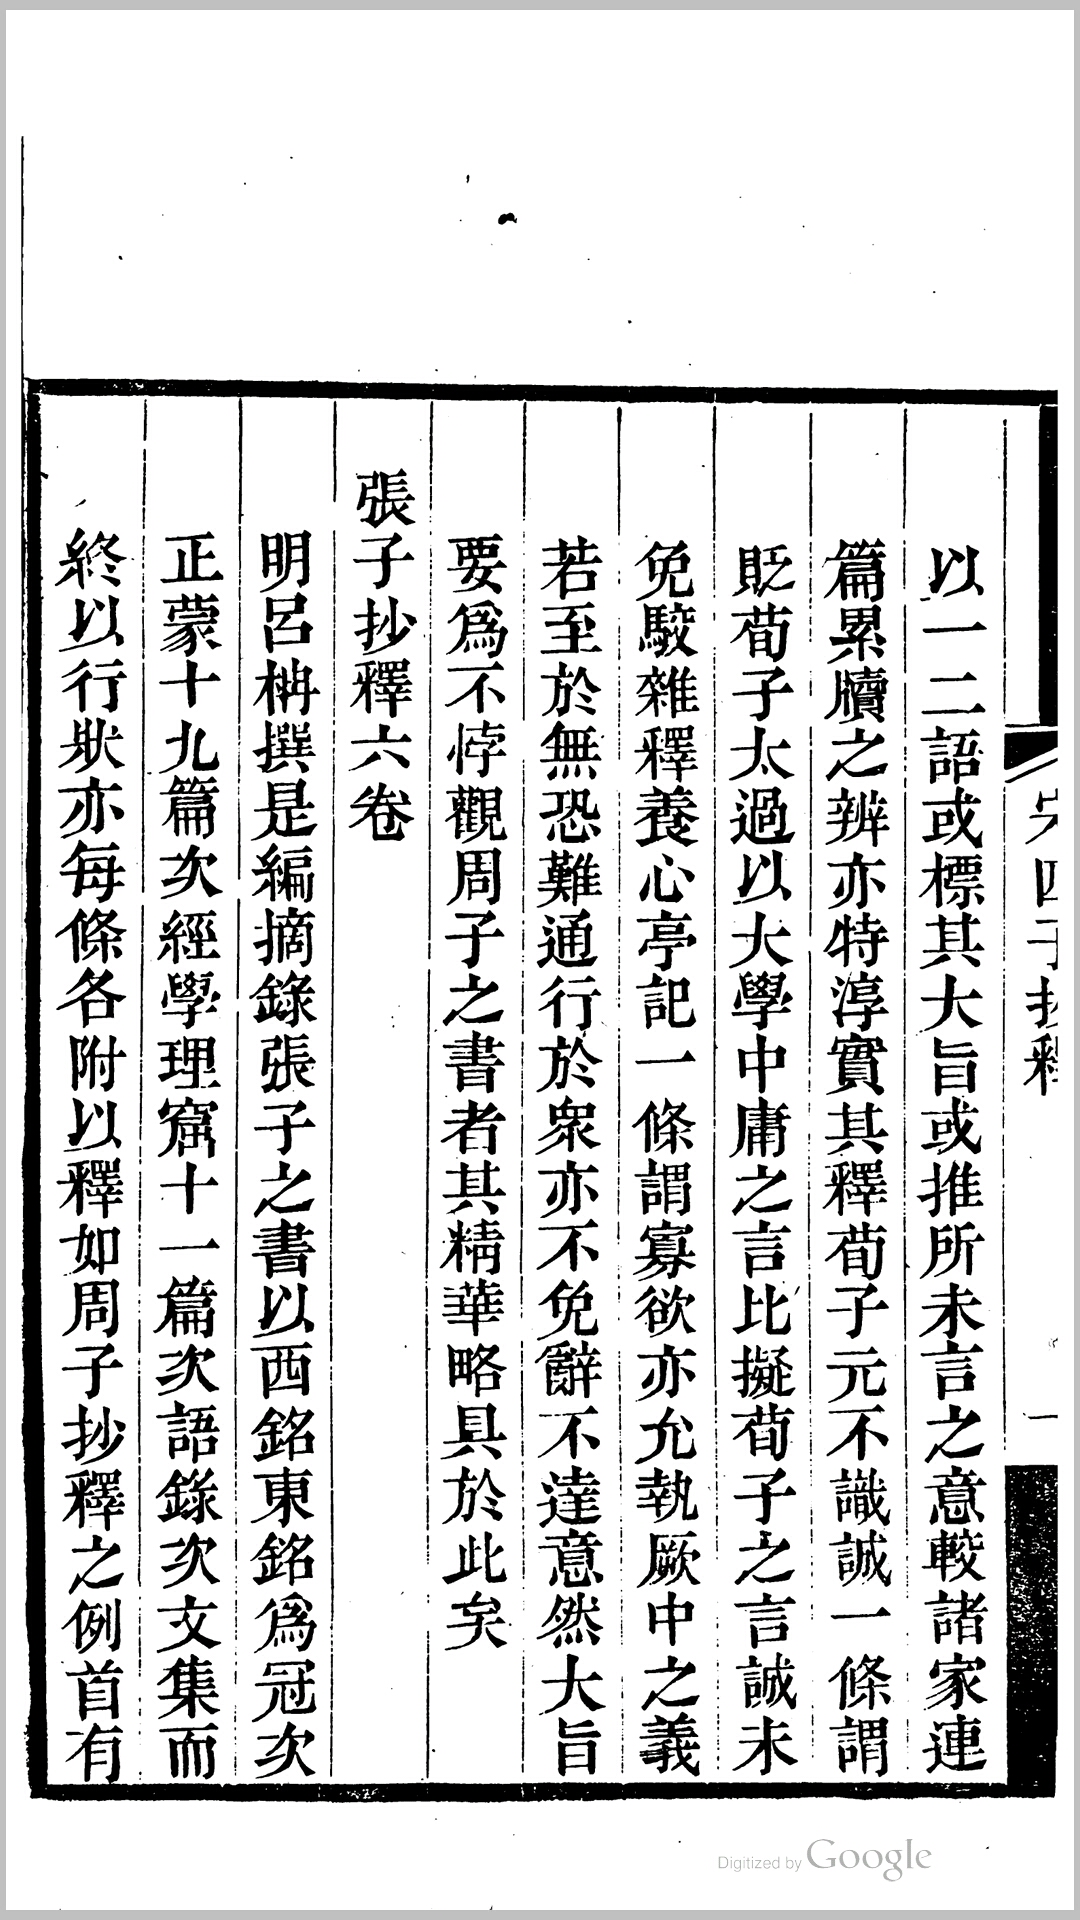 宋四子抄釋
一
以一二語或標其大旨或推所未言之意較諸家連
篇累牘之辨亦特淳實其釋荀子元不識誠一條謂
貶荀子太過以大學中庸之言比擬荀子之言誠未
免駁雜釋養心亭記一條謂寡欲亦允執厥中之義
若至於無恐難通行於衆亦不免辭不達意然大旨
要爲不悖觀周子之書者其精華略具於此矣
張子抄釋六卷
明呂柟撰是編摘錄張子之書以西銘東銘爲冠次
正蒙十九篇次經學理窟十一篇次語錄次文集而
終以行狀亦每條各附以釋如周子抄釋之例首有
Digitized by Google